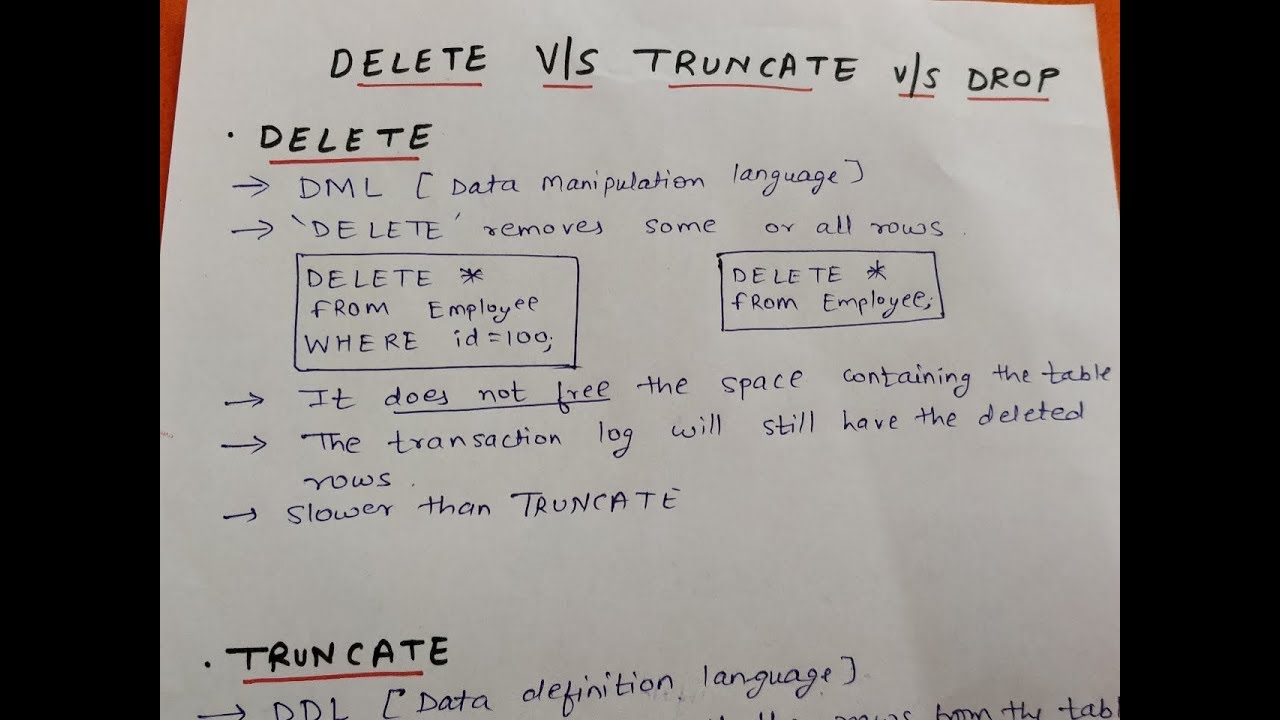 DELETE V/S TRUNCATE V/S DROP
· DELETE
→ DML [Data Manipulation language]
→ 'DELETE' removes some or all rows.
DELETE *
fROM Employee
WHERE id=100;
DELETE *
fROM Employee;
→ It does not free the space containing the table
→ The transaction log will still have the deleted
rows.
→ Slower than TRUNCATE
· TRUNCATE
→ DDL [Data definition language]
the rows from the table